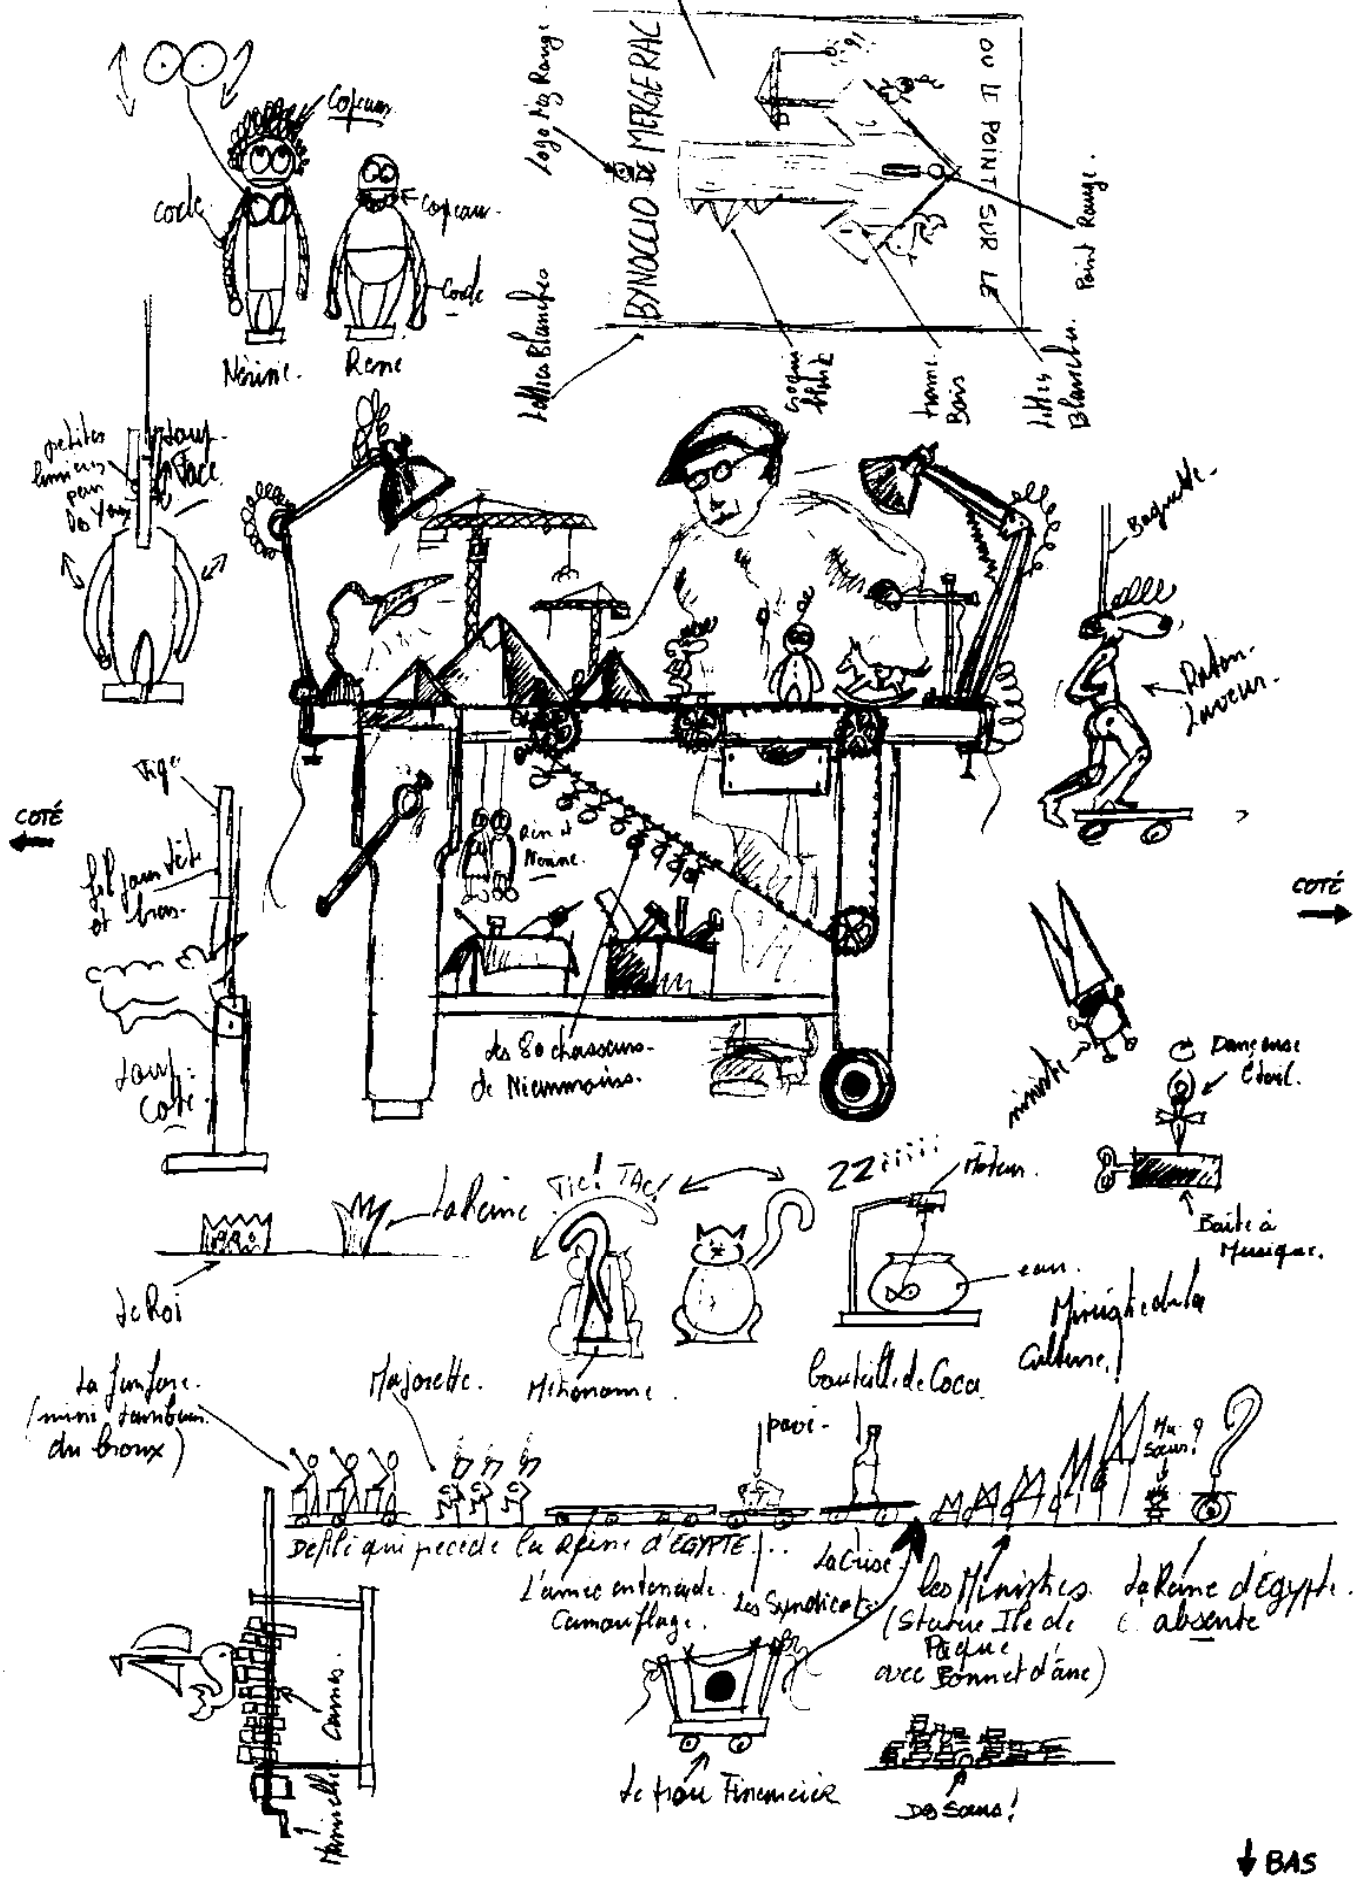 Copeaux
corde
copeaux.
Corde
Nénine.
René
Logo Nez Rouge
BYNOCCIO DE MERGERAC
OU LE POINT SUR LE
Point Rouge.
Lettres Blanches
croquis
trame
Bois
Lettres
Blanches.
petites
lumières
pour
les Yeux
Loup
Face
Baguette.
Raton-
Laveur.
Tige
COTÉ
Fil pour tête
et bras
Loup.
Coté
René et
Nénine.
COTÉ
les 80 chasseurs
de Niammoiss.
ministre
Danseuse
étoile.
Boite à
Musique.
La Reine
Le Roi
TIC! TAC!
Métronome.
ZZ
Moteur.
eau.
Ministre de la
Culture!
La fanfare.
(mini tambour
du bronx)
Majorette.
pavé
Bouteille de Coca
Ma
soeur?
Défilé qui précède la Reine d'EGYPTE...
L'armée en tenue de
Camouflage.
Les Syndicats
La Crise
les Ministres
(Statue Ile de
Pâque
avec Bonnet d'âne)
La Reine d'Egypte
absente
Cames.
Manivelle.
Le trou Financier
Des Sous!
BAS